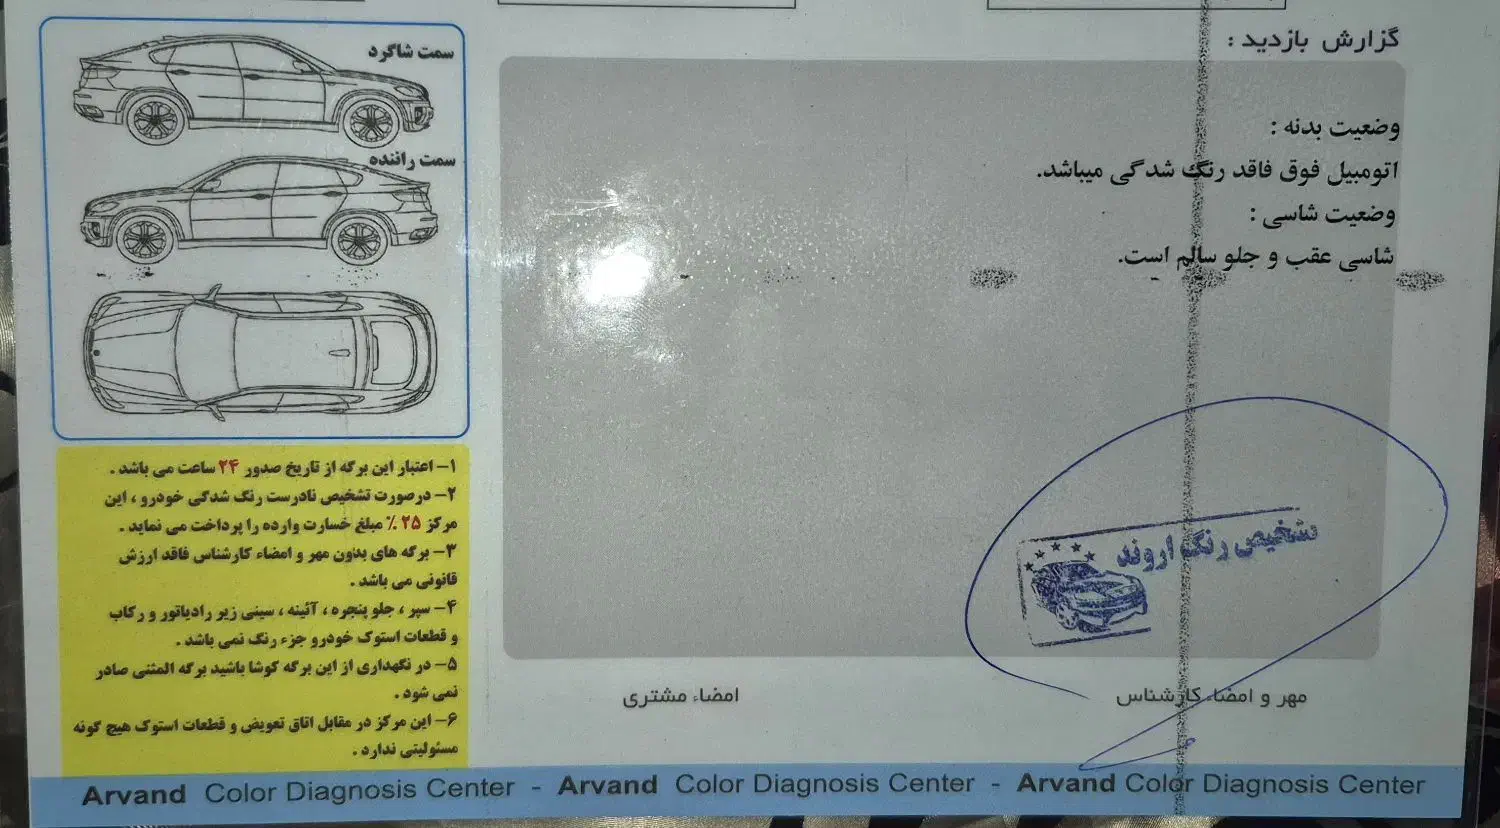 گزارش بازدید :
وضعیت بدنه :
اتومبیل فوق فاقد رنگ شدگی میباشد.
وضعیت شاسی :
شاسی عقب و جلو سالم است.
تشخیص رنگ اروند
مهر و امضاء کارشناس
امضاء مشتری
سمت شاگرد
سمت راننده
۱- اعتبار این برگه از تاریخ صدور ۲۴ ساعت می باشد .
۲- درصورت تشخیص نادرست رنگ شدگی خودرو ، این
مرکز ۲۵ ٪ مبلغ خسارت وارده را پرداخت می نماید .
۳- برگه های بدون مهر و امضاء کارشناس فاقد ارزش
قانونی می باشد .
۴- سپر ، جلو پنجره ، آئینه ، سینی زیر رادیاتور و رکاب
و قطعات استوک خودرو جزء رنگ نمی باشد .
۵- در نگهداری از این برگه کوشا باشید برگه المثنی صادر
نمی شود .
۶- این مرکز در مقابل اتاق تعویض و قطعات استوک هیچ گونه
مسئولیتی ندارد .
Arvand Color Diagnosis Center - Arvand Color Diagnosis Center - Arvand Color Diagnosis Center